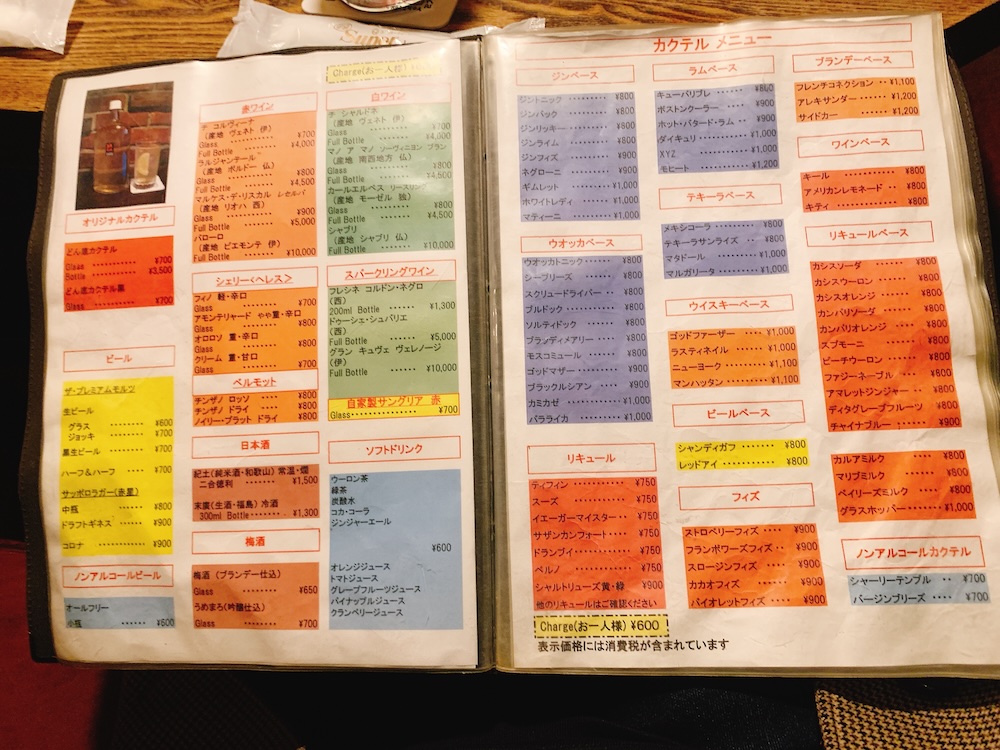 Charge(お一人様)
オリジナルカクテル
どん底カクテル
Glass ・・・・・・・・・・ ¥700
Bottle ・・・・・・・・ ¥3,500
どん底カクテル黒
Glass ・・・・・・・・・・ ¥700
ビール
ザ・プレミアムモルツ
生ビール
グラス ・・・・・・・・ ¥600
ジョッキ ・・・・・・・・ ¥700
黒生ビール ・・・・・・・・ ¥700
ハーフ&ハーフ ・・・・ ¥700
サッポロラガー(赤星)
中瓶 ・・・・・・・・ ¥800
ドラフトギネス ・・・・・ ¥900
コロナ ・・・・・・・・ ¥900
ノンアルコールビール
オールフリー
小瓶 ・・・・・・・・ ¥600
赤ワイン
チ コルヴィーナ
(産地 ヴェネト 伊)
Glass ・・・・・・・・ ¥700
Full Bottle ・・・・ ¥4,000
ラルジャンテール
(産地 ボルドー 仏)
Glass ・・・・・・・・ ¥800
Full Bottle ・・・・ ¥4,500
マルケス・デ・リスカル レセルバ
(産地 リオハ 西)
Glass ・・・・・・・・ ¥900
Full Bottle ・・・・ ¥5,000
バローロ
(産地 ピエモンテ 伊)
Full Bottle ・・・・ ¥10,000
シェリー<ヘレス>
フィノ 軽・辛口
Glass ・・・・・・・・ ¥700
アモンテリャード やや重・辛口
Glass ・・・・・・・・ ¥800
オロロソ 重・辛口
Glass ・・・・・・・・ ¥800
クリーム 重・甘口
Glass ・・・・・・・・ ¥700
ベルモット
チンザノ ロッソ ・・・・ ¥800
チンザノ ドライ ・・・・ ¥800
ノイリー・プラット ドライ ¥800
日本酒
紀土(純米酒・和歌山)常温・燗
二合徳利 ・・・・・・ ¥1,500
末廣(生酒・福島)冷酒
300ml Bottle・・・・・・ ¥1,300
梅酒
梅酒(ブランデー仕込)
Glass ・・・・・・・・ ¥650
うめまろ(吟醸仕込)
Glass ・・・・・・・・ ¥700
白ワイン
チ シャルドネ
(産地 ヴェネト 伊)
Glass ・・・・・・・・ ¥700
Full Bottle ・・・・ ¥4,000
マノ ア マノ ソーヴィニヨン ブラン
(産地 南西地方 仏)
Glass ・・・・・・・・ ¥800
Full Bottle ・・・・ ¥4,500
カールエルベス リースリング
(産地 モーゼル 独)
Glass ・・・・・・・・ ¥800
Full Bottle ・・・・ ¥4,500
シャブリ
(産地 シャブリ 仏)
Full Bottle ・・・・ ¥10,000
スパークリングワイン
フレシネ コルドン・ネグロ
(西)
200ml Bottle ・・・・ ¥1,300
ドゥーシェ・シュバリエ
(西)
Full Bottle ・・・・ ¥5,000
グラン キュヴェ ヴェレノージ
(伊)
Full Bottle ・・・・ ¥10,000
自家製サングリア 赤
Glass・・・・・・・・・・ ¥700
ソフトドリンク
ウーロン茶
緑茶
炭酸水
コカ・コーラ
ジンジャーエール
¥600
オレンジジュース
トマトジュース
グレープフルーツジュース
パイナップルジュース
クランベリージュース
カクテル メニュー
ジンベース
ジントニック ・・・・・・・ ¥800
ジンバック ・・・・・・・ ¥800
ジンリッキー ・・・・・・ ¥800
ジンライム ・・・・・・・ ¥800
ジンフィズ ・・・・・・・ ¥900
ネグローニ ・・・・・・・ ¥900
ギムレット ・・・・・・・ ¥1,000
ホワイトレディ ・・・・ ¥1,000
マティーニ ・・・・・・ ¥1,000
ウオッカベース
ウオッカトニック・・・・・・ ¥800
シーブリーズ ・・・・・・ ¥800
スクリュードライバー・・・ ¥800
ブルドック ・・・・・・・ ¥800
ソルティドック ・・・・・ ¥800
ブラッディメアリー ・・・ ¥800
モスコミュール ・・・・・ ¥800
ゴッドマザー ・・・・・・ ¥900
ブラックルシアン ・・・・ ¥900
カミカゼ ・・・・・・・・ ¥1,000
バラライカ ・・・・・・・ ¥1,000
リキュール
ティフィン ・・・・・・・ ¥750
スーズ ・・・・・・・・ ¥750
イエーガーマイスター・・ ¥750
サザンカンフォート ・・・ ¥750
ドランブイ ・・・・・・・ ¥750
ペルノ ・・・・・・・・ ¥750
シャルトリューズ黄・緑 ¥900
他のリキュールはご確認ください
Charge(お一人様)¥600
表示価格には消費税が含まれています
ラムベース
キューバリブレ ・・・・・ ¥800
ボストンクーラー ・・・・ ¥900
ホット・バタード・ラム ・・ ¥900
ダイキュリ ・・・・・・ ¥1,000
XYZ ・・・・・・・・ ¥1,000
モヒート ・・・・・・・ ¥1,200
テキーラベース
メキシコーラ ・・・・・・ ¥800
テキーラサンライズ ・・ ¥800
マタドール ・・・・・・ ¥1,000
マルガリータ ・・・・・ ¥1,000
ウイスキーベース
ゴッドファーザー ・・・・ ¥1,000
ラスティネイル ・・・・ ¥1,000
ニューヨーク ・・・・・ ¥1,100
マンハッタン ・・・・・ ¥1,100
ビールベース
シャンディガフ ・・・・・ ¥800
レッドアイ ・・・・・・・ ¥800
フィズ
ストロベリーフィズ ・・・ ¥900
フランボワーズフィズ ・・ ¥900
スロージンフィズ ・・・・ ¥900
カカオフィズ ・・・・・・ ¥900
バイオレットフィズ ・・・ ¥900
ブランデーベース
フレンチコネクション ・・・ ¥1,100
アレキサンダー ・・・・・ ¥1,200
サイドカー ・・・・・・・ ¥1,200
ワインベース
キール ・・・・・・・・ ¥800
アメリカンレモネード ・・ ¥800
キティ ・・・・・・・・ ¥800
リキュールベース
カシスソーダ ・・・・・・ ¥800
カシスウーロン ・・・・・ ¥800
カシスオレンジ ・・・・・ ¥800
カンパリソーダ ・・・・・ ¥800
カンパリオレンジ ・・・・ ¥800
スプモーニ ・・・・・・・ ¥800
ピーチウーロン ・・・・・ ¥800
ファジーネーブル ・・・・ ¥800
アマレットジンジャー・・・ ¥800
ディタグレープフルーツ ¥800
チャイナブルー ・・・・・ ¥900
カルアミルク ・・・・・・ ¥800
マリブミルク ・・・・・・ ¥800
ベイリーズミルク ・・・・ ¥800
グラスホッパー・・・・・ ¥1,000
ノンアルコールカクテル
シャーリーテンプル ・・ ¥700
バージンブリーズ ・・・・ ¥700